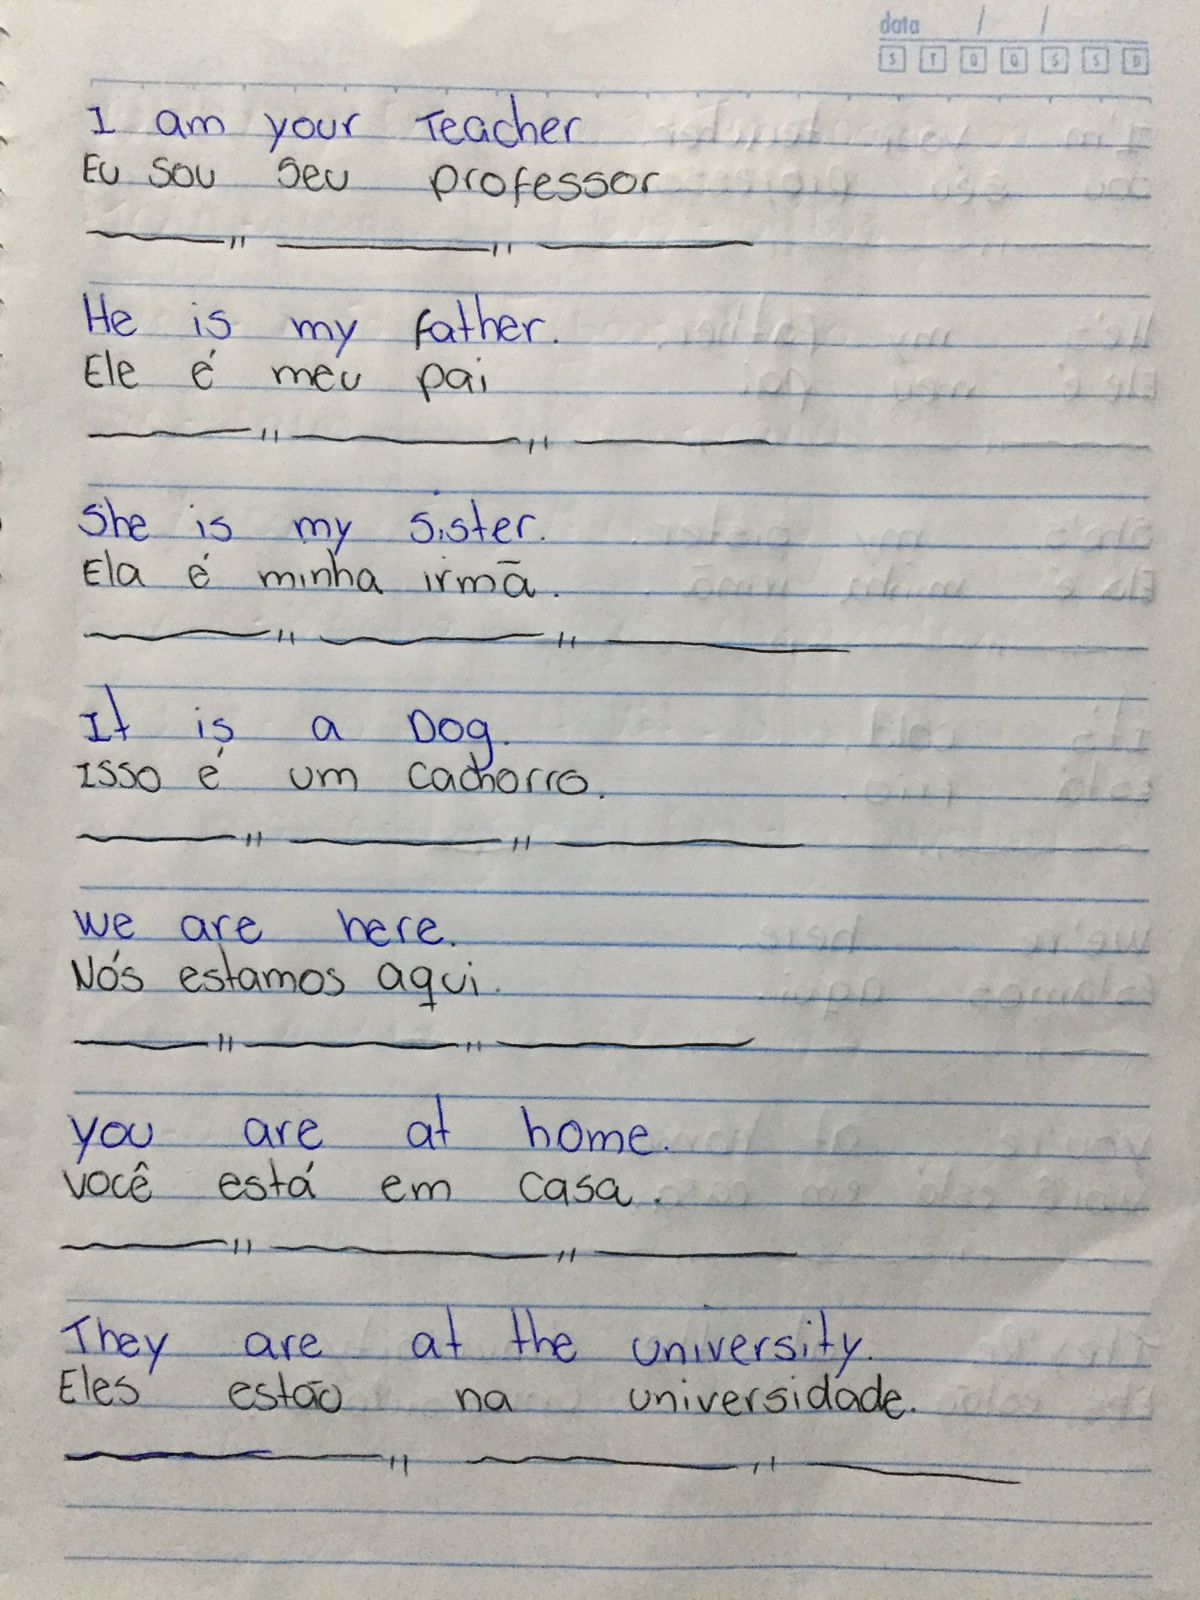 data / /
S T Q Q S S D
I am your Teacher
Eu sou seu professor
He is my father.
Ele é meu pai
She is my sister.
Ela é minha irmã.
It is a Dog.
Isso é um cachorro.
we are here.
Nós estamos aqui.
you are at home.
você está em casa.
They are at the university.
Eles estão na universidade.